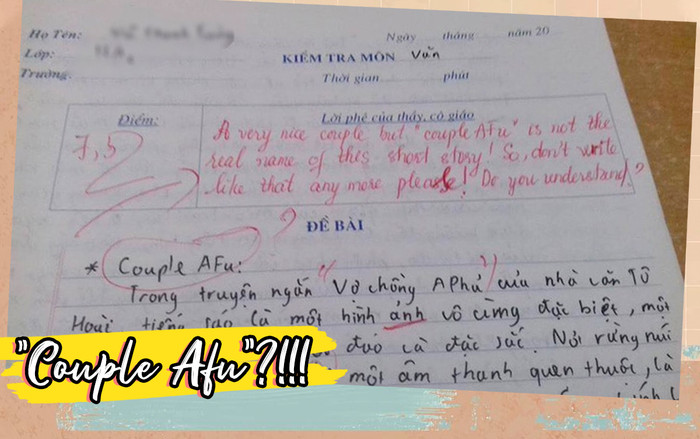 Họ Tên:
Ngày tháng năm 20
Lớp:
KIỂM TRA MÔN Văn
Trường:
Thời gian phút
Điểm:
Lời phê của thầy, cô giáo
7,5
A very nice couple but "couple AFu" is not the
real name of this short story! So, don't write
like that any more please! Do you understand?
ĐỀ BÀI
* Couple AFu:
Trong truyện ngắn "Vợ chồng APhủ" của nhà văn Tô
Hoài tiếng sáo là một hình ảnh vô cùng đặc biệt, một
đáo và đặc sắc. Nơi rừng núi
một âm thanh quen thuộc, là
"Couple Afu"?!!!